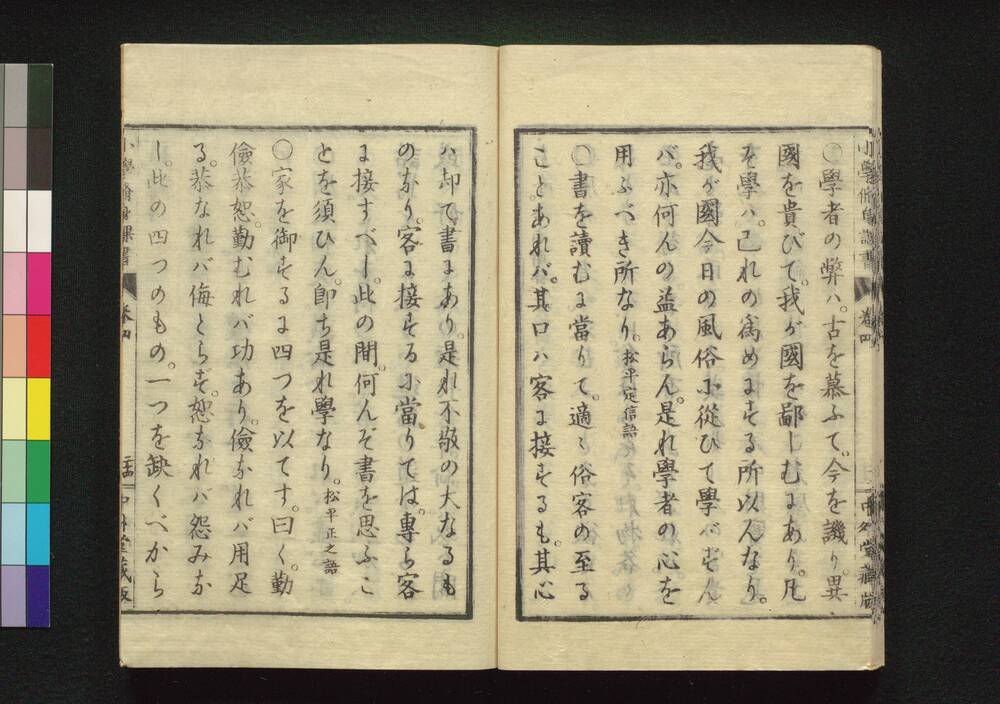 〇學者の弊ハ。古を慕ふて。今を譏り。異
國を貴びて。我が國を鄙しむにあり。凡
そ學ハ。己れの爲めにする所以んなり。
我が國今日の風俗に從ひて學バずん
バ。亦何んの益あらん。是れ學者の心を
用ふべき所なり。松平定信語
〇書を讀むに當りて。適〻俗客の至る
ことあれバ。其口ハ客に接するも。其心
ハ却て書にあり。是れ不敬の大なるも
のなり。客に接するに當りては。專ら客
に接すべし。此の間。何んぞ書を思ふこ
とを須ひん。卽ち是れ學なり。松平正之語
〇家を御するに四つを以てす。曰く。勤
儉恭恕。勤むれバ功あり。儉なれバ用足
る。恭なれバ侮とらず。恕なれバ怨みな
し。此の四つのもの。一つを缺くべから
小學脩身課書
卷四
中外堂藏版